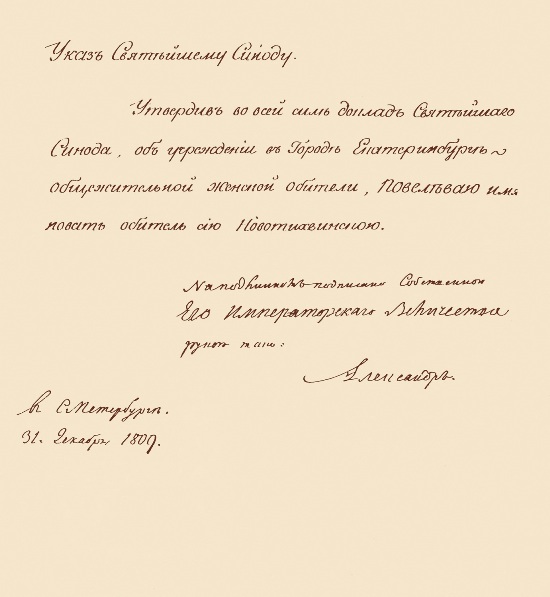 Указъ Святѣйшему Синоду.
Утвердивъ во всей силѣ докладъ Святѣйшаго
Синода, объ учрежденіи въ Городѣ Екатеринбургѣ
общежительной женской обители, Повелѣваю име
новать обитель сію Новотихвинскою.
На подлинномъ подписано Собственною
Его Императорскаго Величества
рукою тако:
Александръ.
въ СПетербургѣ.
31. Декабря 1809.